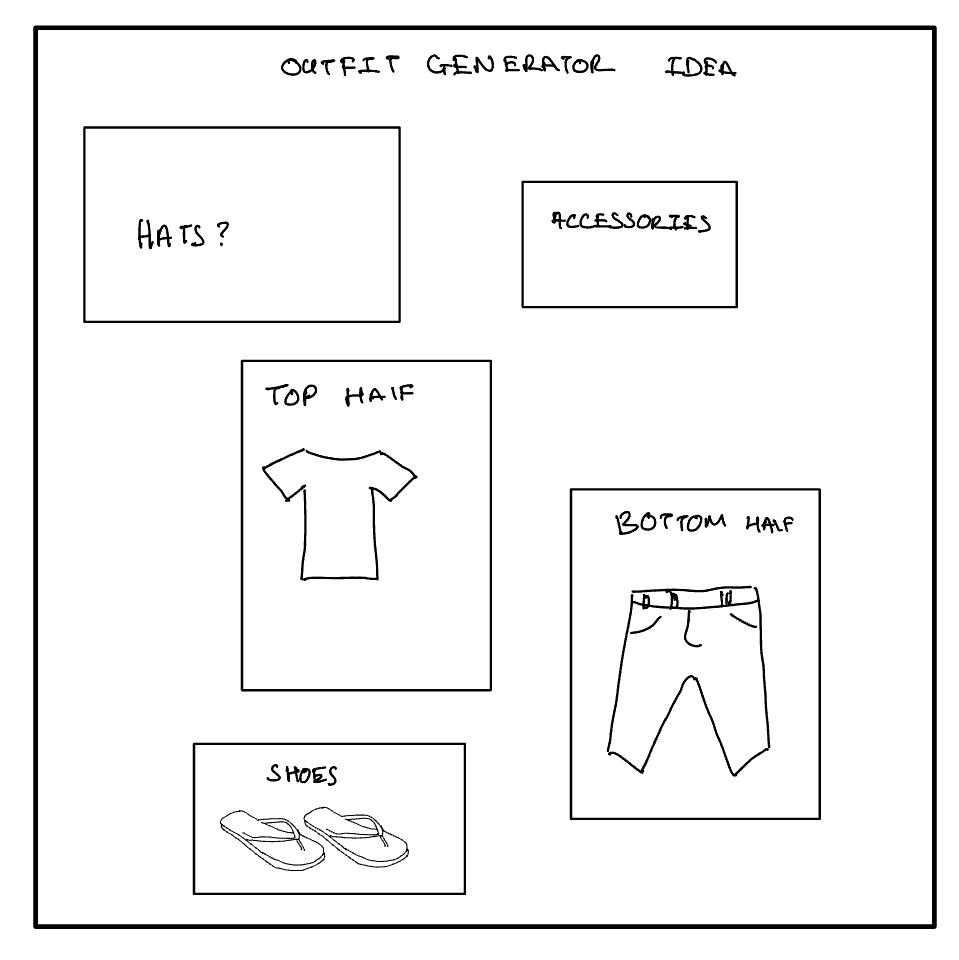 OUTFIT GENERATOR IDEA
HATS?
ACCESSORIES
TOP HALF
BOTTOM HALF
SHOES